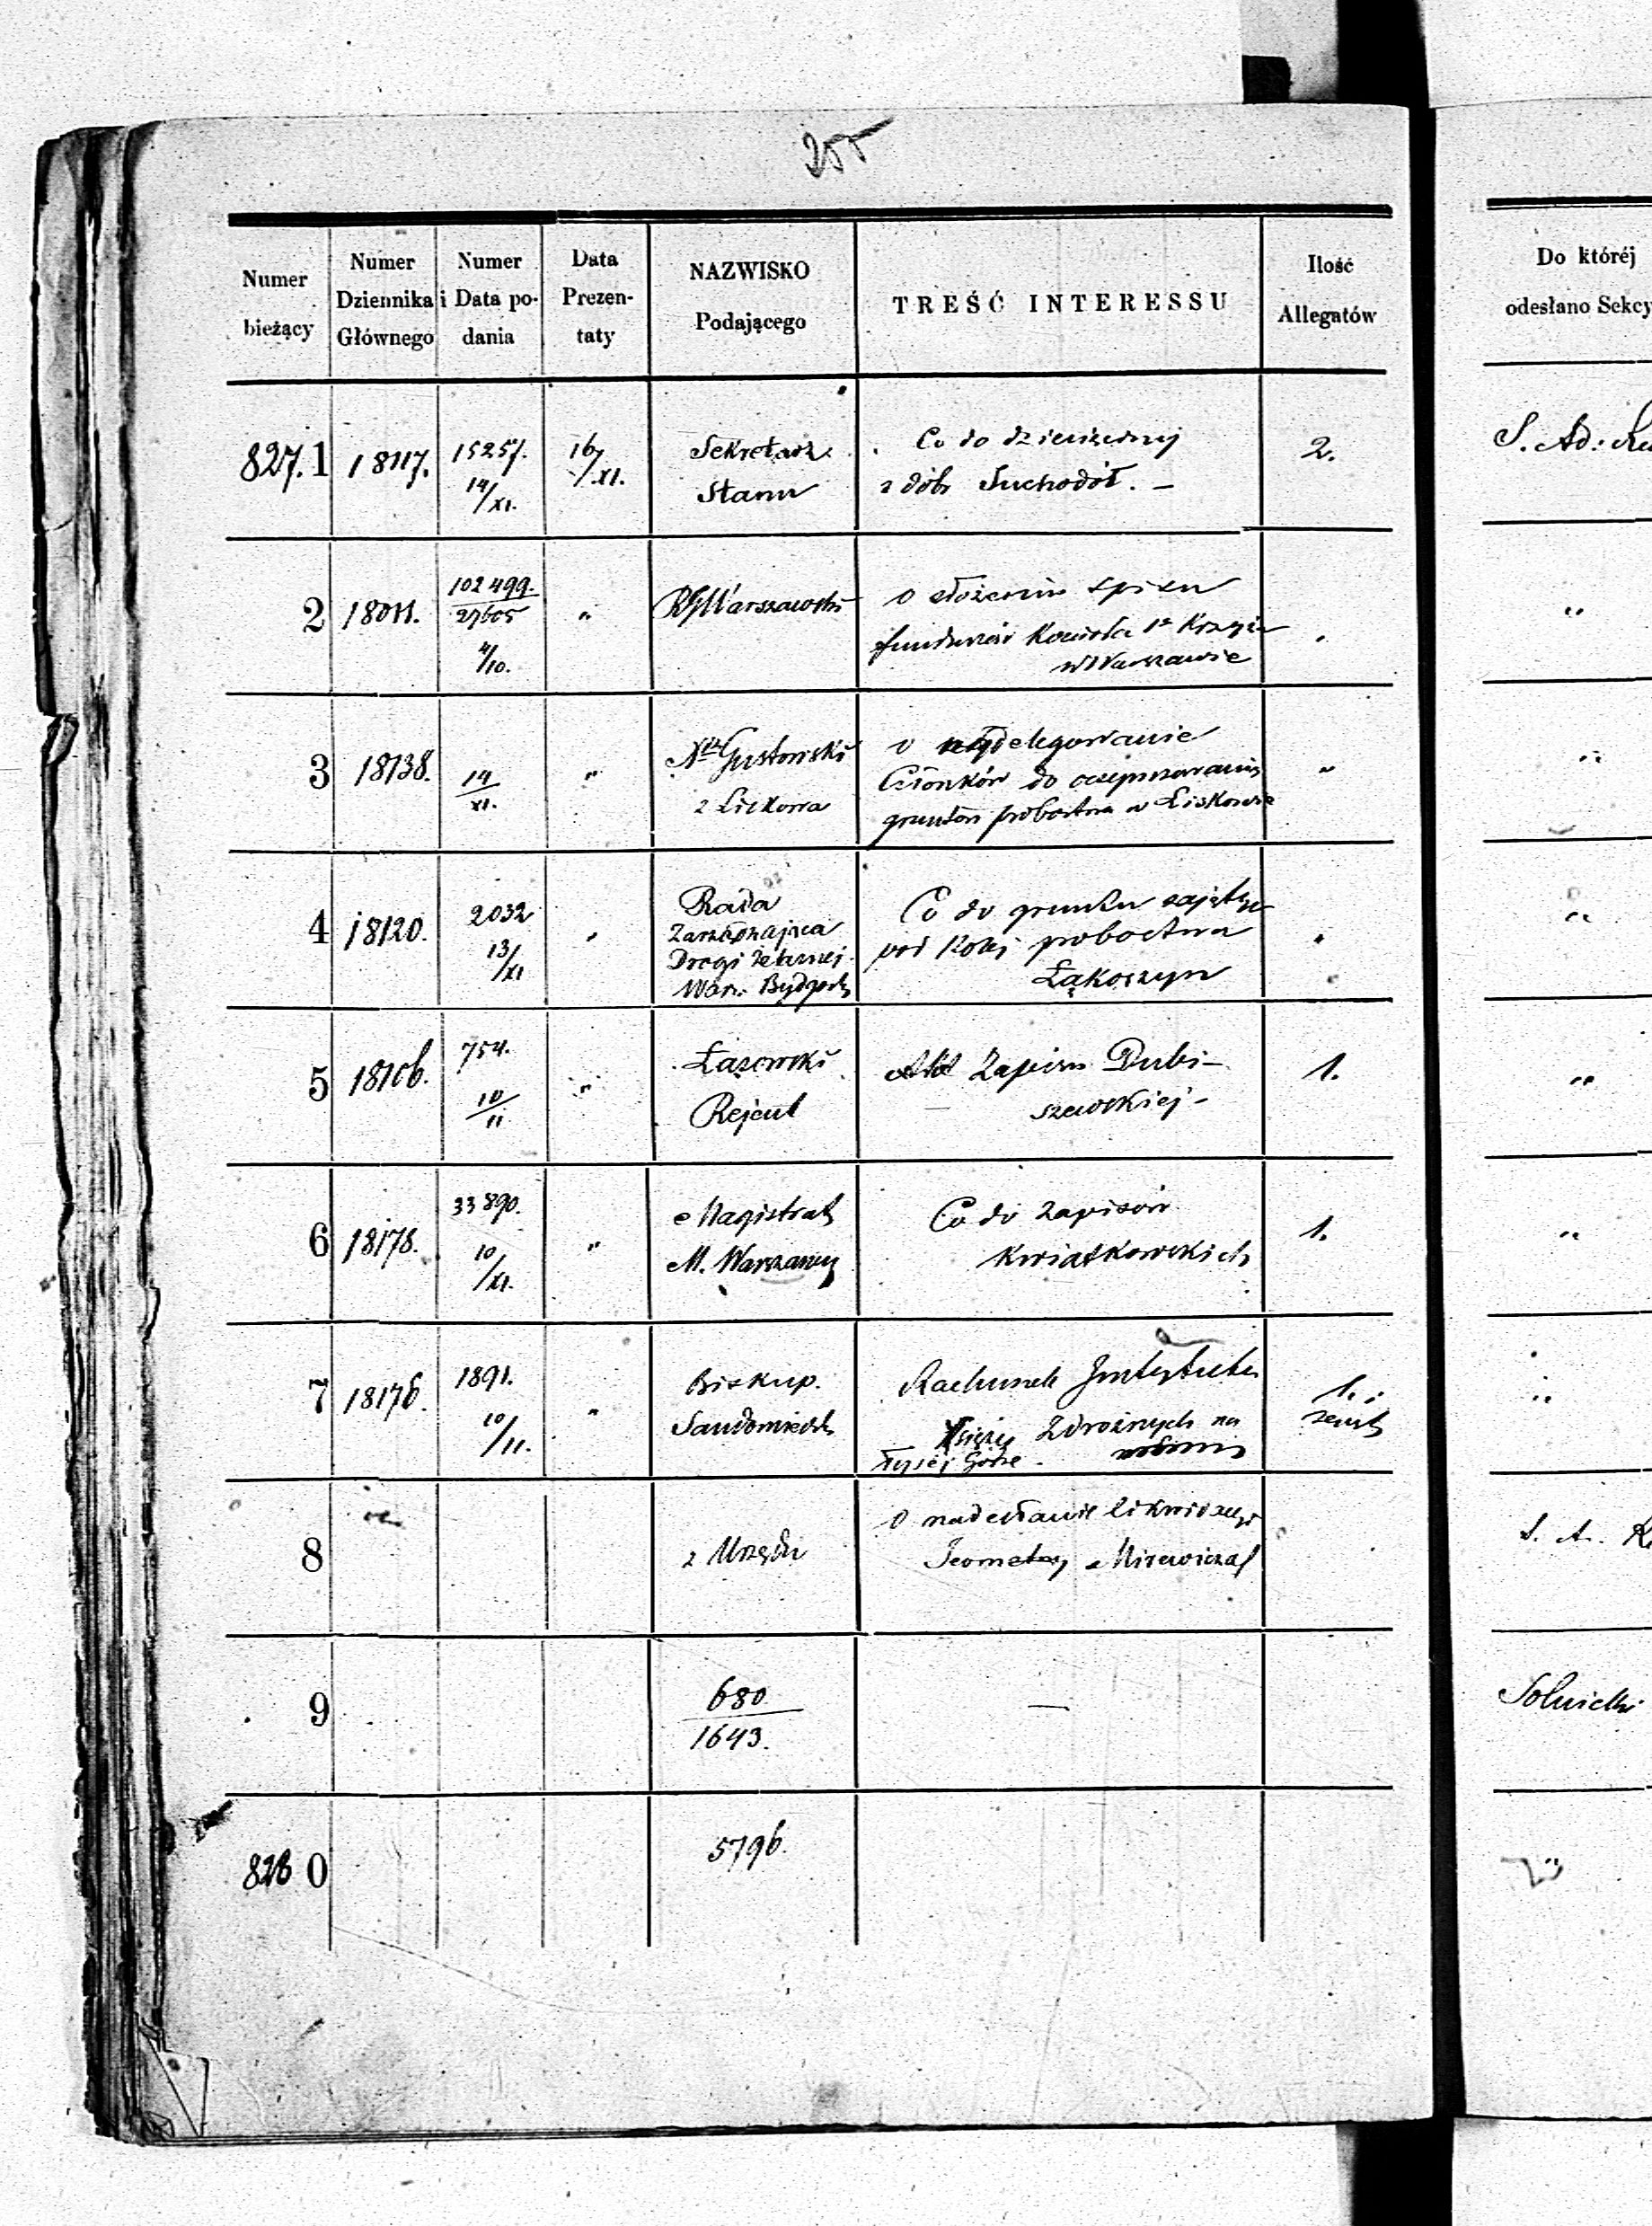 255
Numer bieżący
Numer Dziennika Głównego
Numer i Data podania
Data Prezentaty
NAZWISKO Podającego
TREŚĆ INTERESSU
Ilość Allegatów
Do któréj odesłano Sekcy
827.1 18117. 15257. 14/XI. 16/XI. Sekretarz Stanu
Co do dzierżawnej
z dóbr Suchodół. —
2.
S. Ad:
2 18011. 102499. 27605 4/10. " RGWarszawski
o złożeniu spisu
funduszów Kościoła Krzyża
w Warszawie
"
3 18138. 14/XI. " Gustowski
z Liskowa
o wydelegowanie
Członków do
gruntów probostwa w Liskowie
"
"
4 18120. 2032 13/XI "
Rada
Zarządzająca
Drogi Żelaznej
War. Bydgosk
Co do gruntu zajętego
pod Kolej probostwa
Łąkoszyn
"
"
5 18106. 754. 10/11 "
Łazowski
Rejent
Akt Zapisu Dubi-
szewskiej -
1.
"
6 18178. 33890. 10/XI. "
Magistrat
M. Warszawy
Co do zapisów
Kwiatkowskich
1.
"
7 18176. 1891. 10/11. "
Biskup.
Sandomiersk
Rachunek Instytutu
Księży Zdrożnych na
Łysej Górze -
1.
zeszyt
"
8 z Urzędu
o nadesłanie likwidacyi
Jeometry
S. A.
9 680
1643.
—
828 0 5796.
"